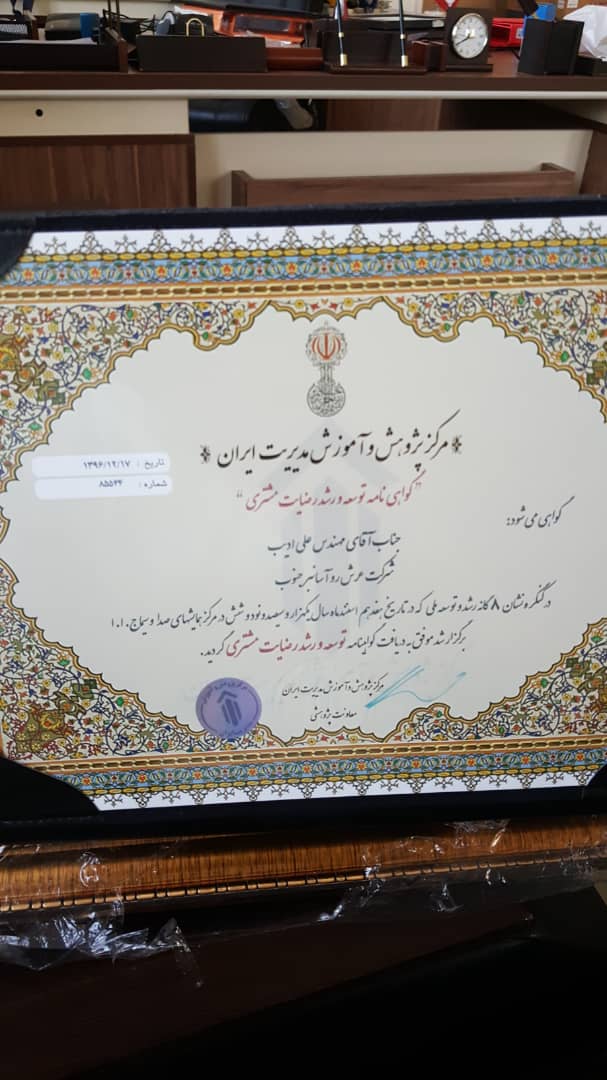 مرکز پژوهش و آموزش مدیریت ایران
تاریخ : ۱۳۹۶/۱۲/۱۷
شماره : ۸۵۵۲۴
"گواهی نامه توسعه و رشد رضایت مشتری"
گواهی می شود:
جناب آقای مهندس علی ادیب
شرکت عرش رو آسانبر جنوب
در کنگره نشان ۸ گانه رشد و توسعه ملی که در تاریخ هفدهم اسفندماه سال یکهزار و سیصد و نود و شش در مرکز همایشهای صدا و سیما ج.ا.ا
برگزار شد موفق به دریافت گواهینامه توسعه و رشد رضایت مشتری گردید.
مرکز پژوهش و آموزش مدیریت ایران
معاونت پژوهشی